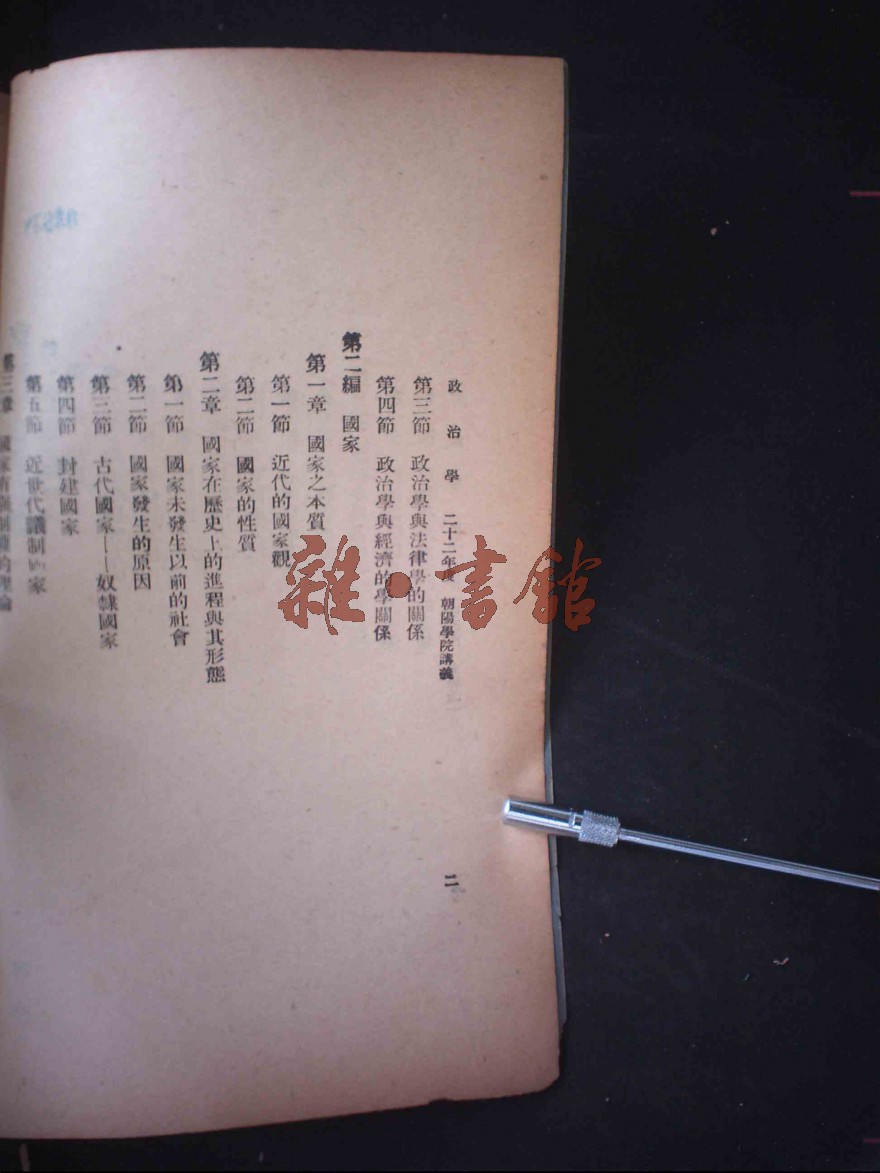 政治學 二十二年度 朝陽學院講義 二
第三節 政治學與法律學的關係
第四節 政治學與經濟的學關係
第二編 國家
第一章 國家之本質
第一節 近代的國家觀
第二節 國家的性質
第二章 國家在歷史上的進程與其形態
第一節 國家未發生以前的社會
第二節 國家發生的原因
第三節 古代國家——奴隸國家
第四節 封建國家
第五節 近世代議制 家
第三章 國家有 的理論
雜·書館